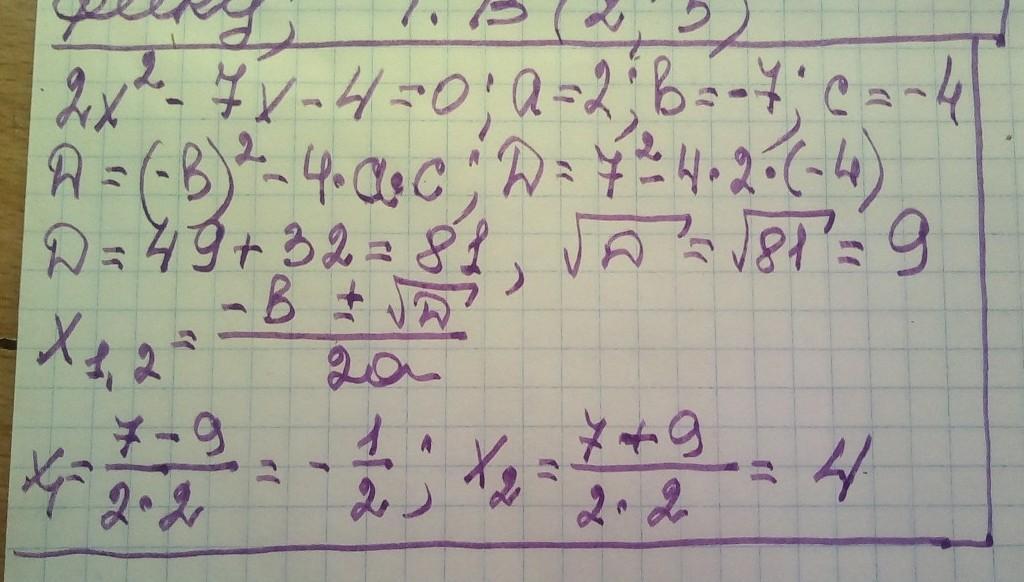 т. В (2; 5)
2x² - 7x - 4 = 0; a = 2; в = -7; c = -4
D = (-в)² - 4·a·c; D = 7² - 4·2·(-4)
D = 49 + 32 = 81, √D = √81 = 9
x₁,₂ = (-в ± √D)/(2a)
x₁ = (7 - 9)/(2·2) = -1/2; x₂ = (7 + 9)/(2·2) = 4